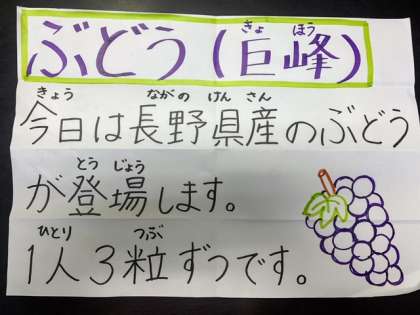 ぶどう（巨峰）
きょ ほう
今日は長野県産のぶどう
きょう ながの けん さん
が登場します。
とう じょう
1人3粒ずつです。
ひとり つぶ